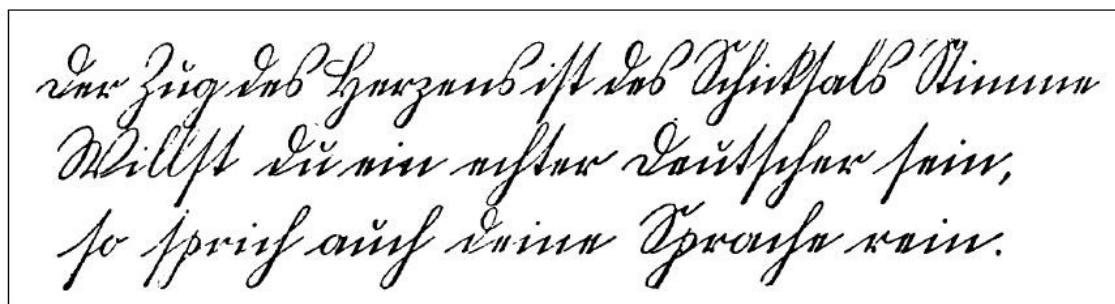 Der Zug des Herzens ist des Schicksals Stimme
Willst du ein echter Deutscher sein,
so sprich auch deine Sprache rein.